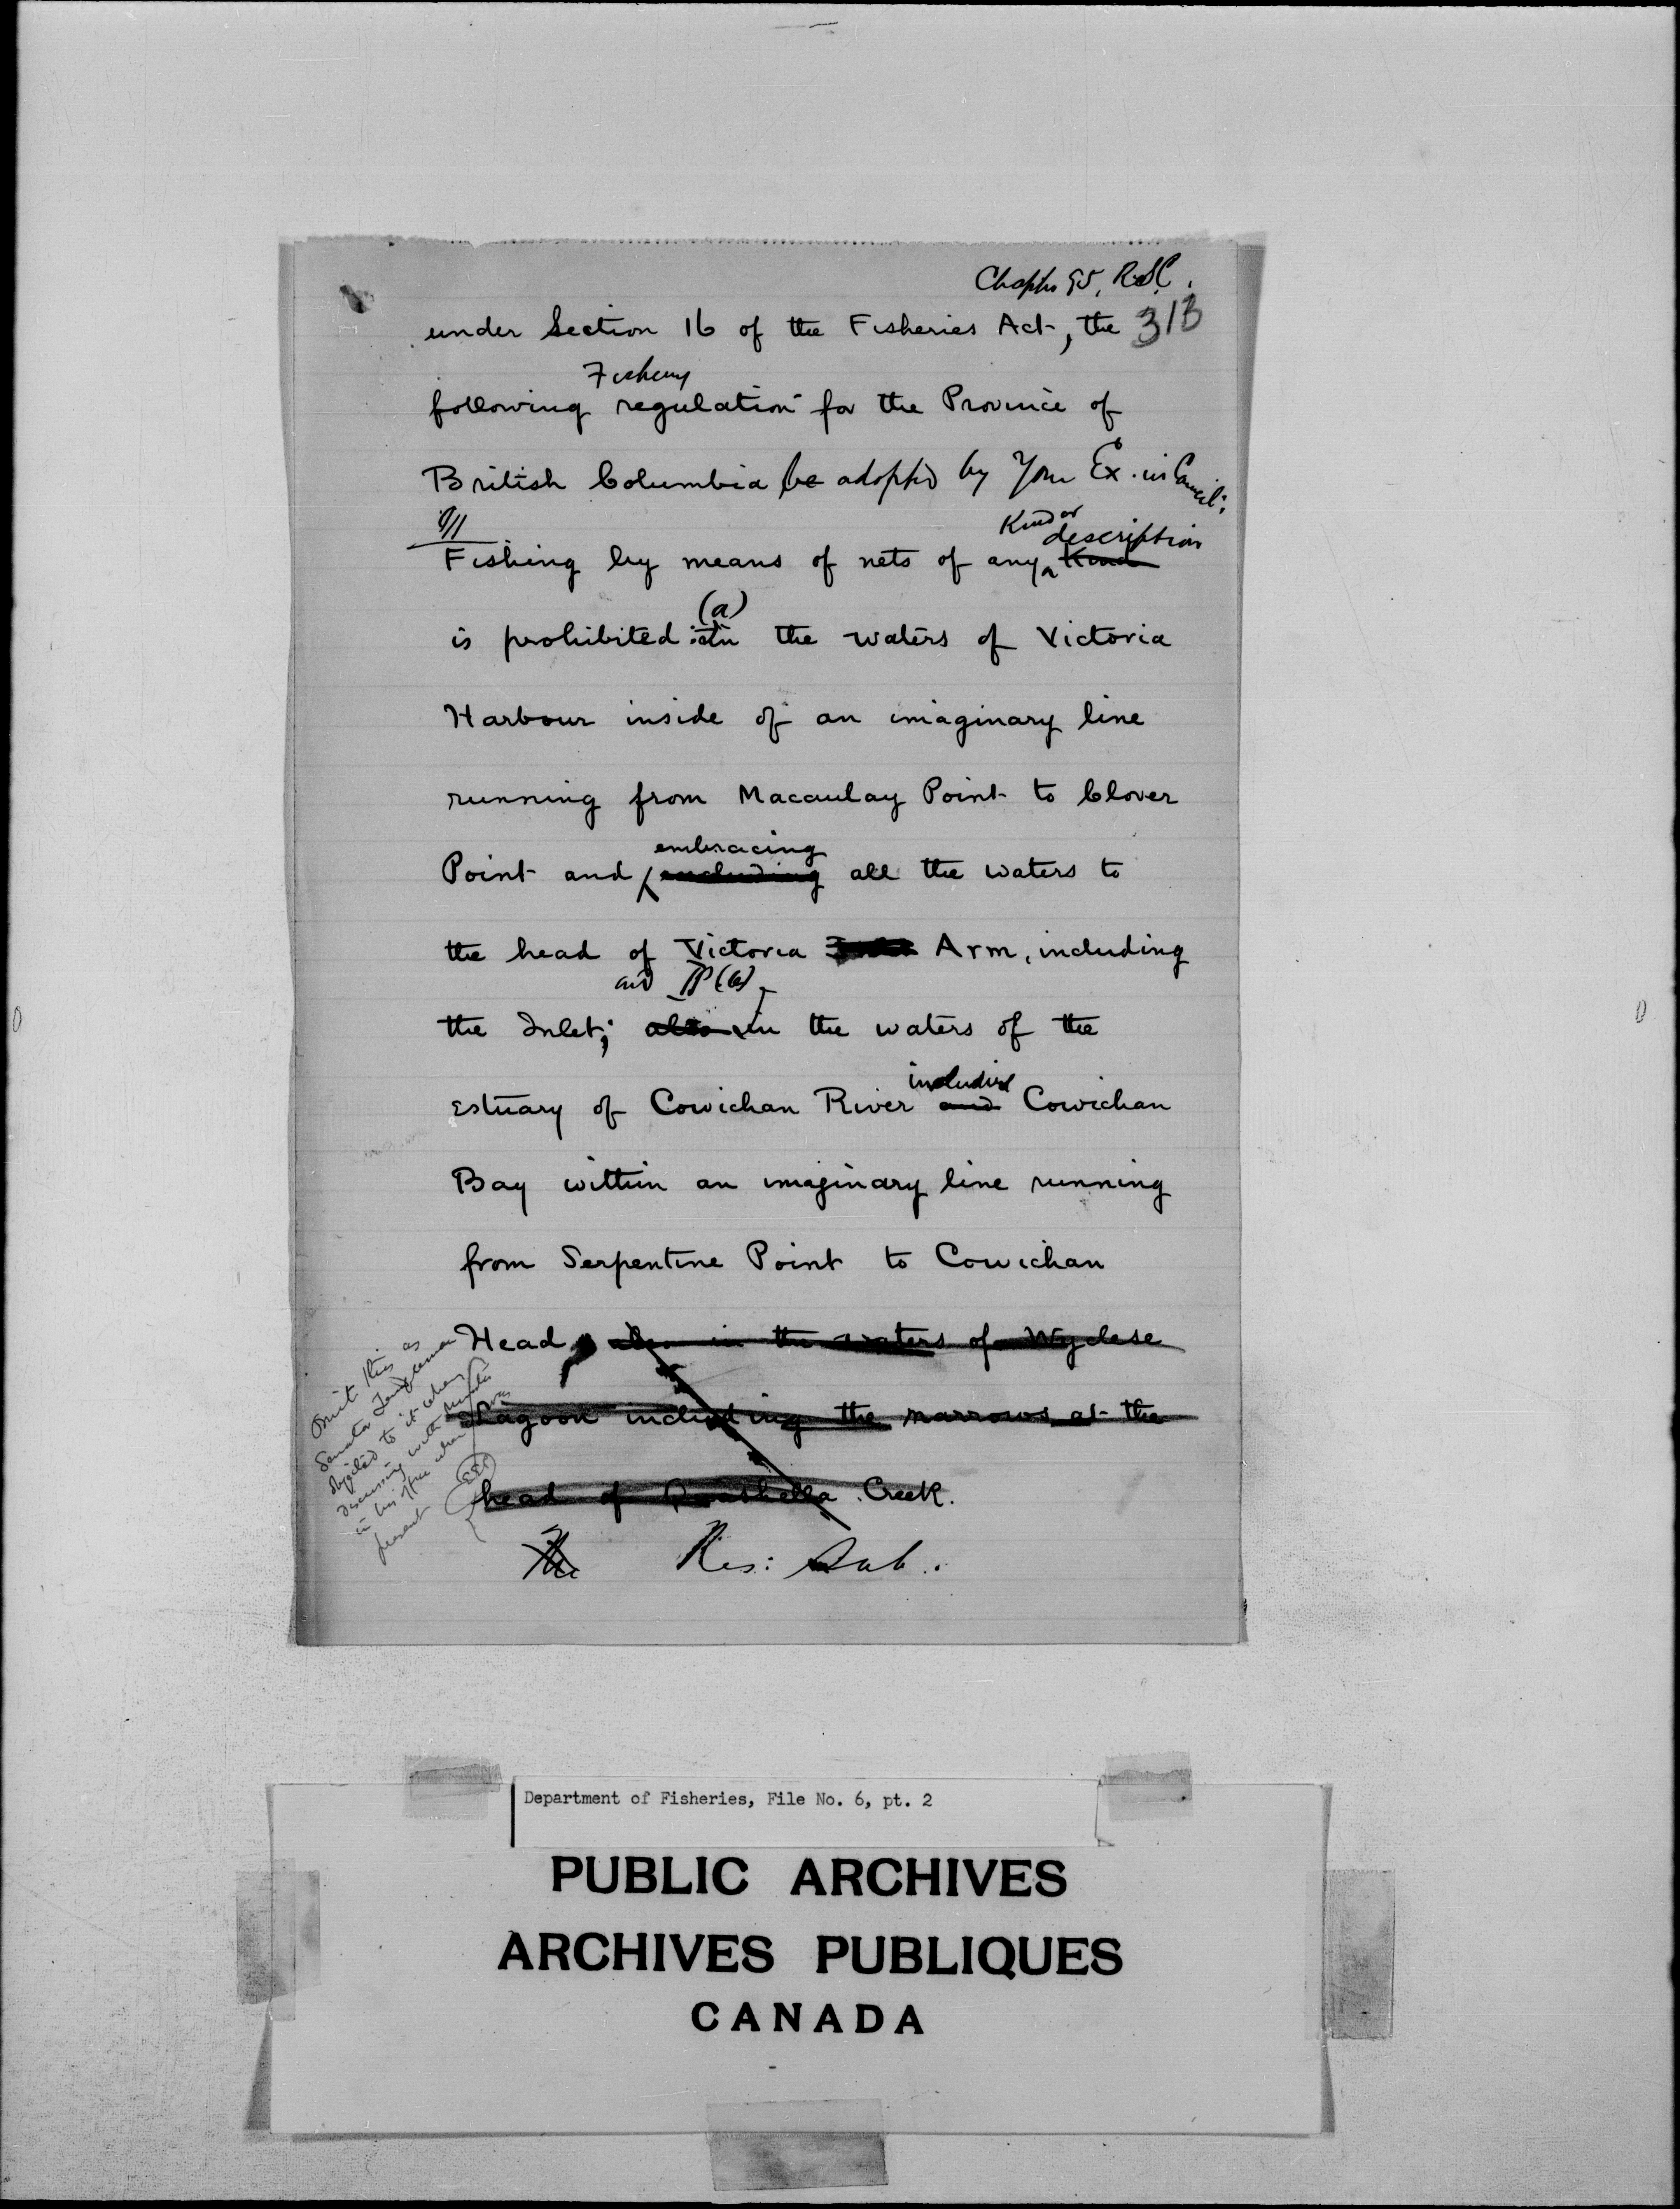 Chapter 95, R.S.C.
under Section 16 of the Fisheries Act, the 313
Fishery
following regulation for the Province of
British Columbia be adopted by Your Ex. in Council:
Kind or
description
Fishing by means of nets of any Kind
(a)
is prohibited: in the waters of Victoria
Harbour inside of an imaginary line
running from Macaulay Point to Clover
embracing
Point and including all the waters to
the head of Victoria Arm, including
and (b)
the Inlet; also in the waters of the
including
Estuary of Cowichan River and Cowichan
Bay within an imaginary line running
from Serpentine Point to Cowichan
Head, also in the waters of Wyclese
Lagoon including the narrows at the
head of Creek.
Omit this as
Senator Templeman
objected to it when
discussing with Minister
in his office when I was
present
Res: Sub.
Department of Fisheries, File No. 6, pt. 2
PUBLIC ARCHIVES
ARCHIVES PUBLIQUES
CANADA